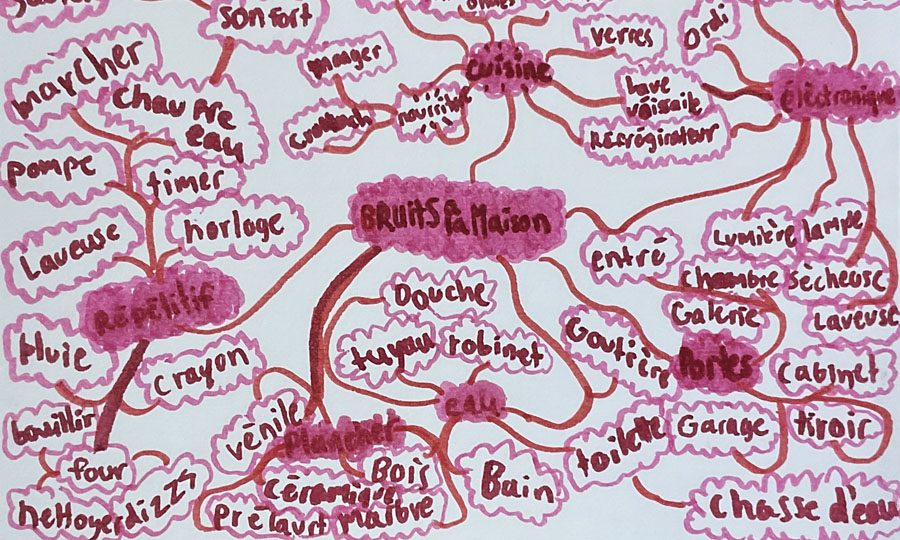 son fort
marcher
chauffe
eau
pompe
timer
Laveuse
horloge
RÉPÉTITIF
pluie
crayon
bouillir
four
nettoyer
manger
nourriture
cuisine
verres
lave
Réfrégirateur
Ordi
électronique
BRUITS de la Maison
entré
Lumière
lampe
chambre
sècheuse
Galerie
Laveuse
Portes
cabinet
Garage
tiroir
Douche
tuyau
robinet
eau
Goutière
toilette
Bain
chasse d'eau
vénile
Plancher
Bois
céramique
Prélaurt
marbre